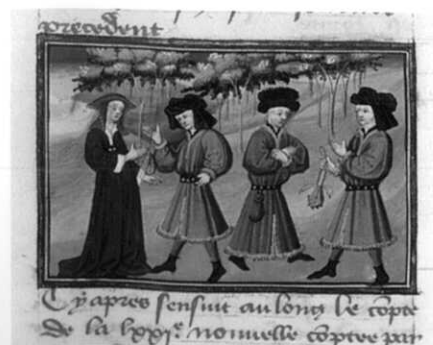 precedent
Cy apres sensuit au long le cõpte
de la lxxie nouuelle cõptee par